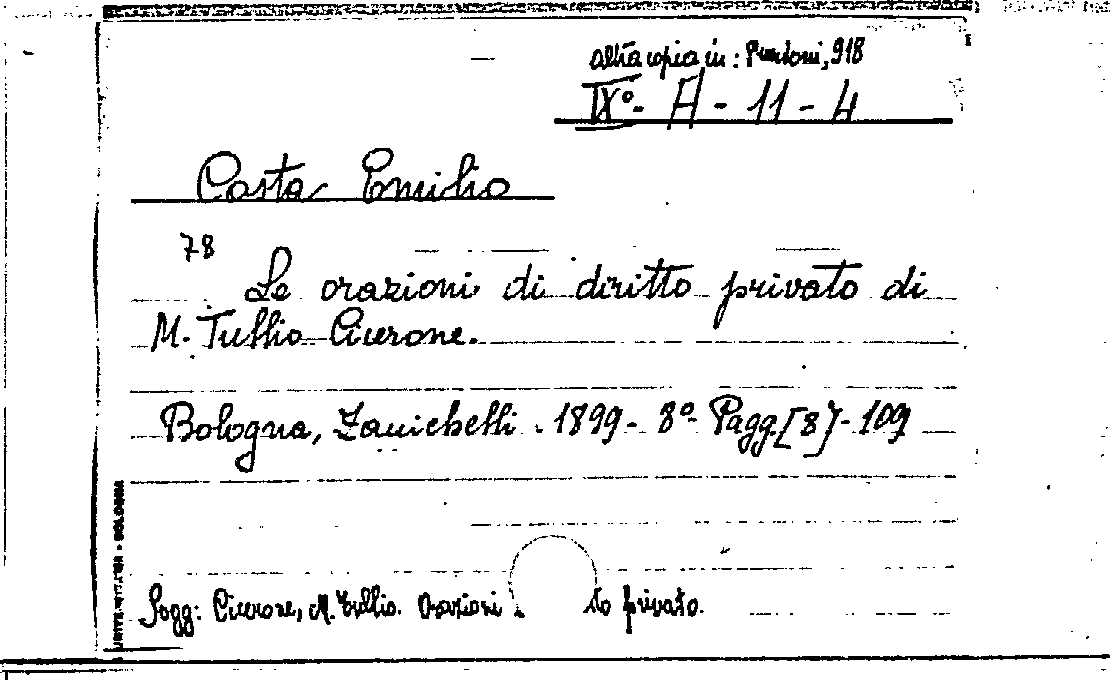 altra copia in: Puntoni, 918
IXº- A - 11 - 4
Costa Emilio
78
Le orazioni di diritto privato di
M. Tullio Cicerone.
Bologna, Zanichelli. 1899 - 8º- Pagg. [8] - 109
BOLOGNA
Sogg: Cicerone, M. Tullio. Orazioni to privato.